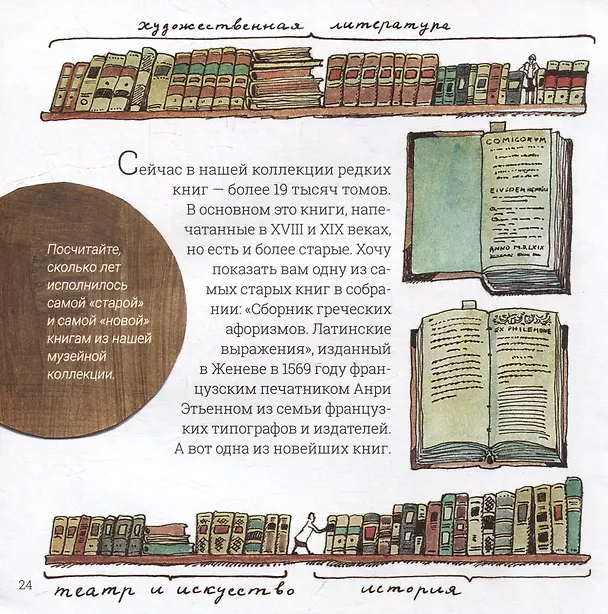 художественная литература
Сейчас в нашей коллекции редких
книг — более 19 тысяч томов.
В основном это книги, напе-
чатанные в XVIII и XIX веках,
но есть и более старые. Хочу
показать вам одну из са-
мых старых книг в собра-
нии: «Сборник греческих
афоризмов. Латинские
выражения», изданный
в Женеве в 1569 году фран-
цузским печатником Анри
Этьенном из семьи француз-
ских типографов и издателей.
А вот одна из новейших книг.
Посчитайте,
сколько лет
исполнилось
самой «старой»
и самой «новой»
книгам из нашей
музейной
коллекции.
COMICORUM
ANNO M.D.LXIX
EX PHILEMONE
театр и искусство
история
24